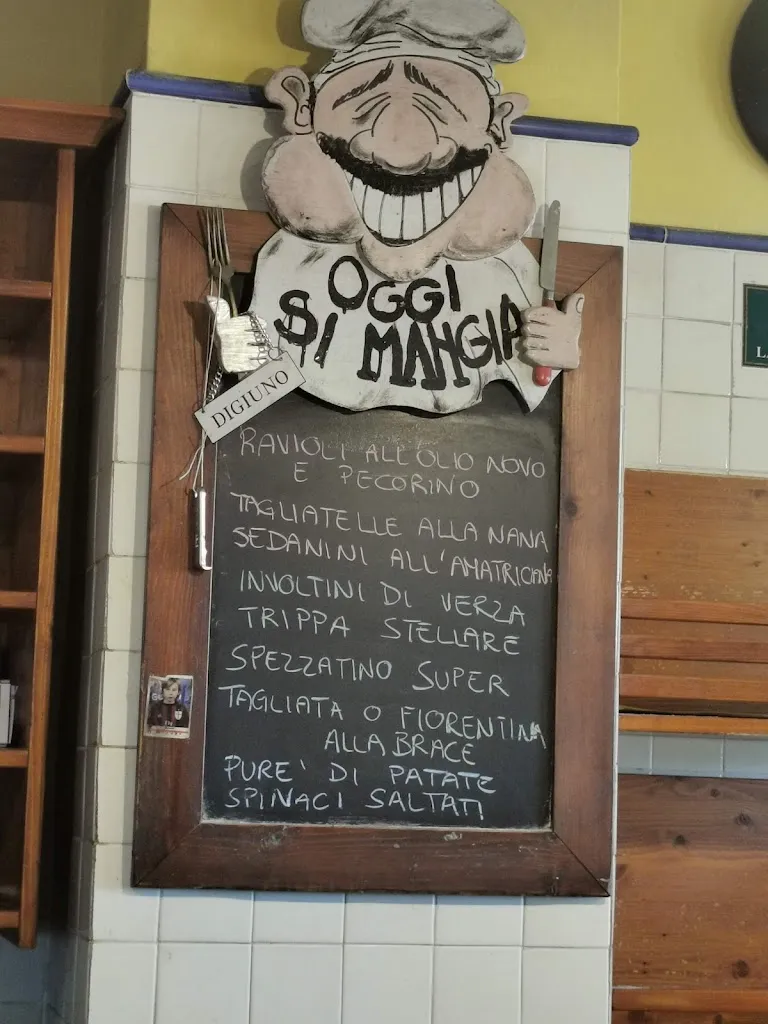 OGGI
SI MANGIA
DIGIUNO
RAVIOLI ALL'OLIO NOVO
E PECORINO
TAGLIATELLE ALLA NANA
SEDANINI ALL'AMATRICIANA
INVOLTINI DI VERZA
TRIPPA STELLARE
SPEZZATINO SUPER
TAGLIATA O FIORENTINA
ALLA BRACE
PURE' DI PATATE
SPINACI SALTATI